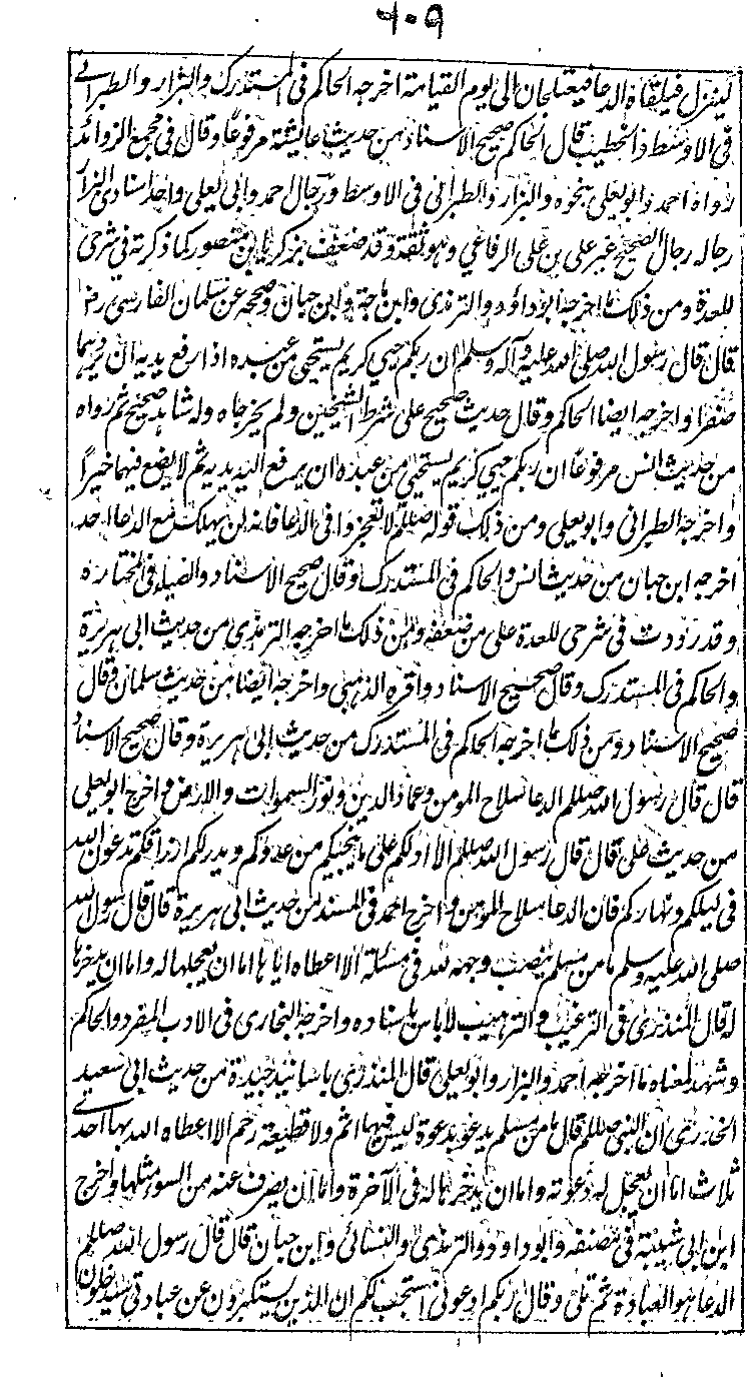 ٢٠٩
لينزل فيلقاه الدعا فيعتلجان الى يوم القيامة اخرجه الحاكم فى المستدرك والبزار والطبرانى
فى الاوسط والخطيب قال الحاكم صحيح الاسناد من حديث عايشة مرفوعا وقال فى مجمع الزوائد
رواه احمد وابو يعلى بنحوه والبزار والطبرانى فى الاوسط ورجال احمد وابى يعلى واحد اسنادى البزار
رجاله رجال الصحيح غير على بن على الرفاعي وهو ثقة وقد ضعف بزكريا بن منصور كما ذكرته فى شرحى
للعدة ومن ذلك ما اخرجه ابو داؤد والترمذى وابن ماجة وابن حبان وصححه عن سلمان الفارسى رض
قال قال رسول الله صلى الله عليه وآله وسلم ان ربكم حيي كريم يستحيى من عبده اذا رفع يديه ان يردهما
صفرا واخرجه ايضا الحاكم وقال حديث صحيح على شرط الشيخين ولم يخرجاه وله شاهد صحيح ثم رواه
من حديث انس مرفوعا ان ربكم حيي كريم يستحيى من عبده ان يرفع اليه يديه ثم لا يضع فيهما خيرا
واخرجه الطبرانى وابو يعلى ومن ذلك قوله صللم لا تعجزوا فى الدعا فانه لن يهلك مع الدعا احد
اخرجه ابن حبان من حديث انس والحاكم فى المستدرك وقال صحيح الاسناد والضياء فى المختاره
وقد رددت فى شرحى للعدة على من ضعفه ومن ذلك ما اخرجه الترمذى من حديث ابى هريرة
والحاكم فى المستدرك وقال صحيح الاسناد واقره الذهبى واخرجه ايضا من حديث سلمان وقال
صحيح الاسناد ومن ذلك ما اخرجه الحاكم فى المستدرك من حديث ابى هريرة وقال صحيح الاسناد
قال قال رسول الله صللم الدعا سلاح المومن وعماد الدين ونور السموات والارض واخرج ابو يعلى
من حديث على قال قال رسول الله صللم الا ادلكم على ما ينجيكم من عدوكم ويدر لكم ارزاقكم تدعون الله
فى ليلكم ونهاركم فان الدعا سلاح المومن واخرج احمد فى المسند من حديث ابى هريرة قال قال رسول الله
صلى الله عليه وسلم ما من مسلم ينصب وجهه لله فى مسئلة الا اعطاه اياها اما ان يعجلها له واما ان يدخرها
له قال المنذرى فى الترغيب والترهيب لا باس باسناده واخرجه البخارى فى الادب المفرد والحاكم
وشهد لمعناه ما اخرجه احمد والبزار وابو يعلى قال المنذرى باسانيد جيدة من حديث ابى سعيد
الخدرى ان النبى صللم قال ما من مسلم يدعو بدعوة ليس فيها اثم ولا قطيعة رحم الا اعطاه الله بها احدى
ثلاث اما ان يعجل له دعوته واما ان يدخرها له فى الآخرة واما ان يصرف عنه من السوء مثلها واخرج
ابن ابى شيبة فى مصنفه وابو داود والترمذى والنسائى وابن حبان قال قال رسول الله صللم
الدعا هو العبادة ثم تلى وقال ربكم ادعونى استجب لكم ان الذين يستكبرون عن عبادتى سيدخلون